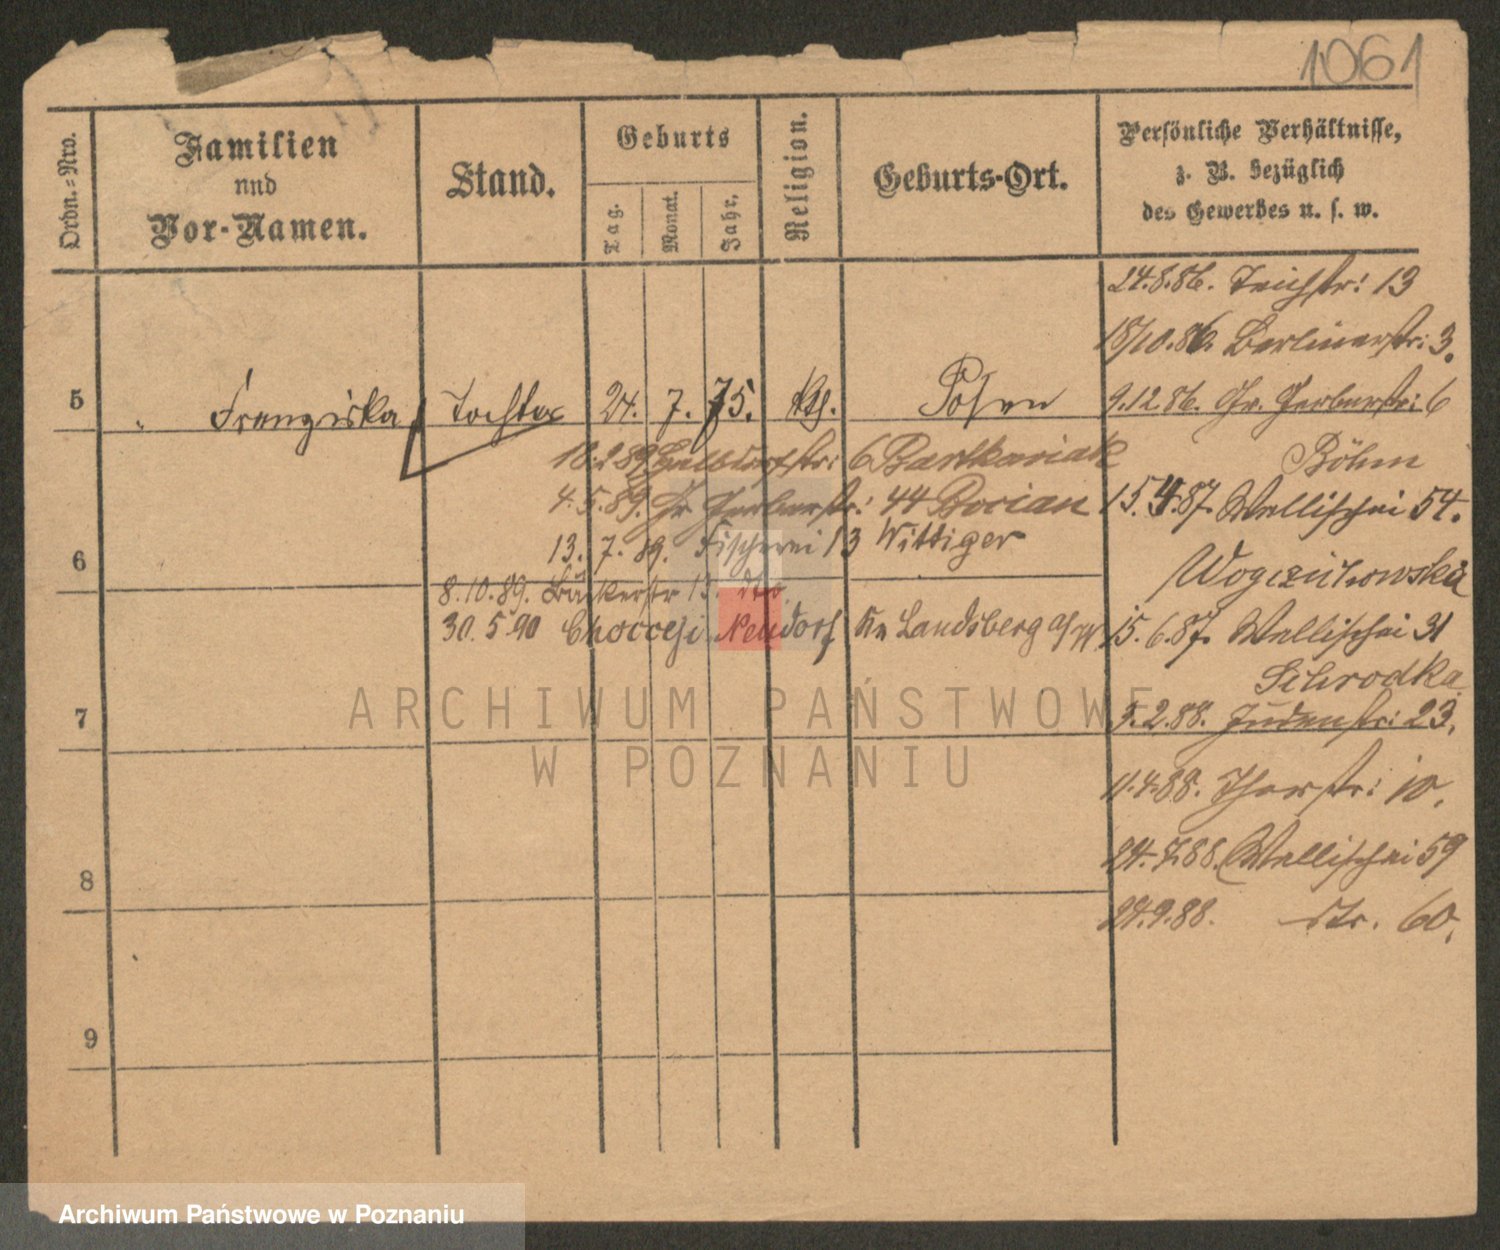 1061
Ordn.=Nro.
Familien
und
Vor-Namen.
Stand.
Geburts
Tag.
Monat.
Jahr.
Religion.
Geburts-Ort.
Persönliche Verhältnisse,
z. B. bezüglich
des Gewerbes u. s. w.
24.8.86. Teichstr: 13
18/10.86. Berlinerstr: 3.
5 " Franziska Tochter 24. 7. 75. kth. Posen 9.12 86. Gr. Gerberstr: 6
10.2 89 Halbdorfstr: 6 Bartkowiak Böhm
4.5.89. Gr Gerberstr: 44 Bocian 15.4.87. Wallischei 54.
6 13. 7. 89. Fischerei 13 Wittiger
8.10.89. Bäckerstr 13. dto
30.5 90 Neudorf Kr Landsberg a/W 15.6.87. Wallischei 31
Schrodka
7 5.2.88. Judenstr: 23.
11.4.88. Thorstr: 10.
8 24.7.88. Wallischei 59
24.9.88. dto. 60.
9
ARCHIWUM PAŃSTWOWE
W POZNANIU
Archiwum Państwowe w Poznaniu